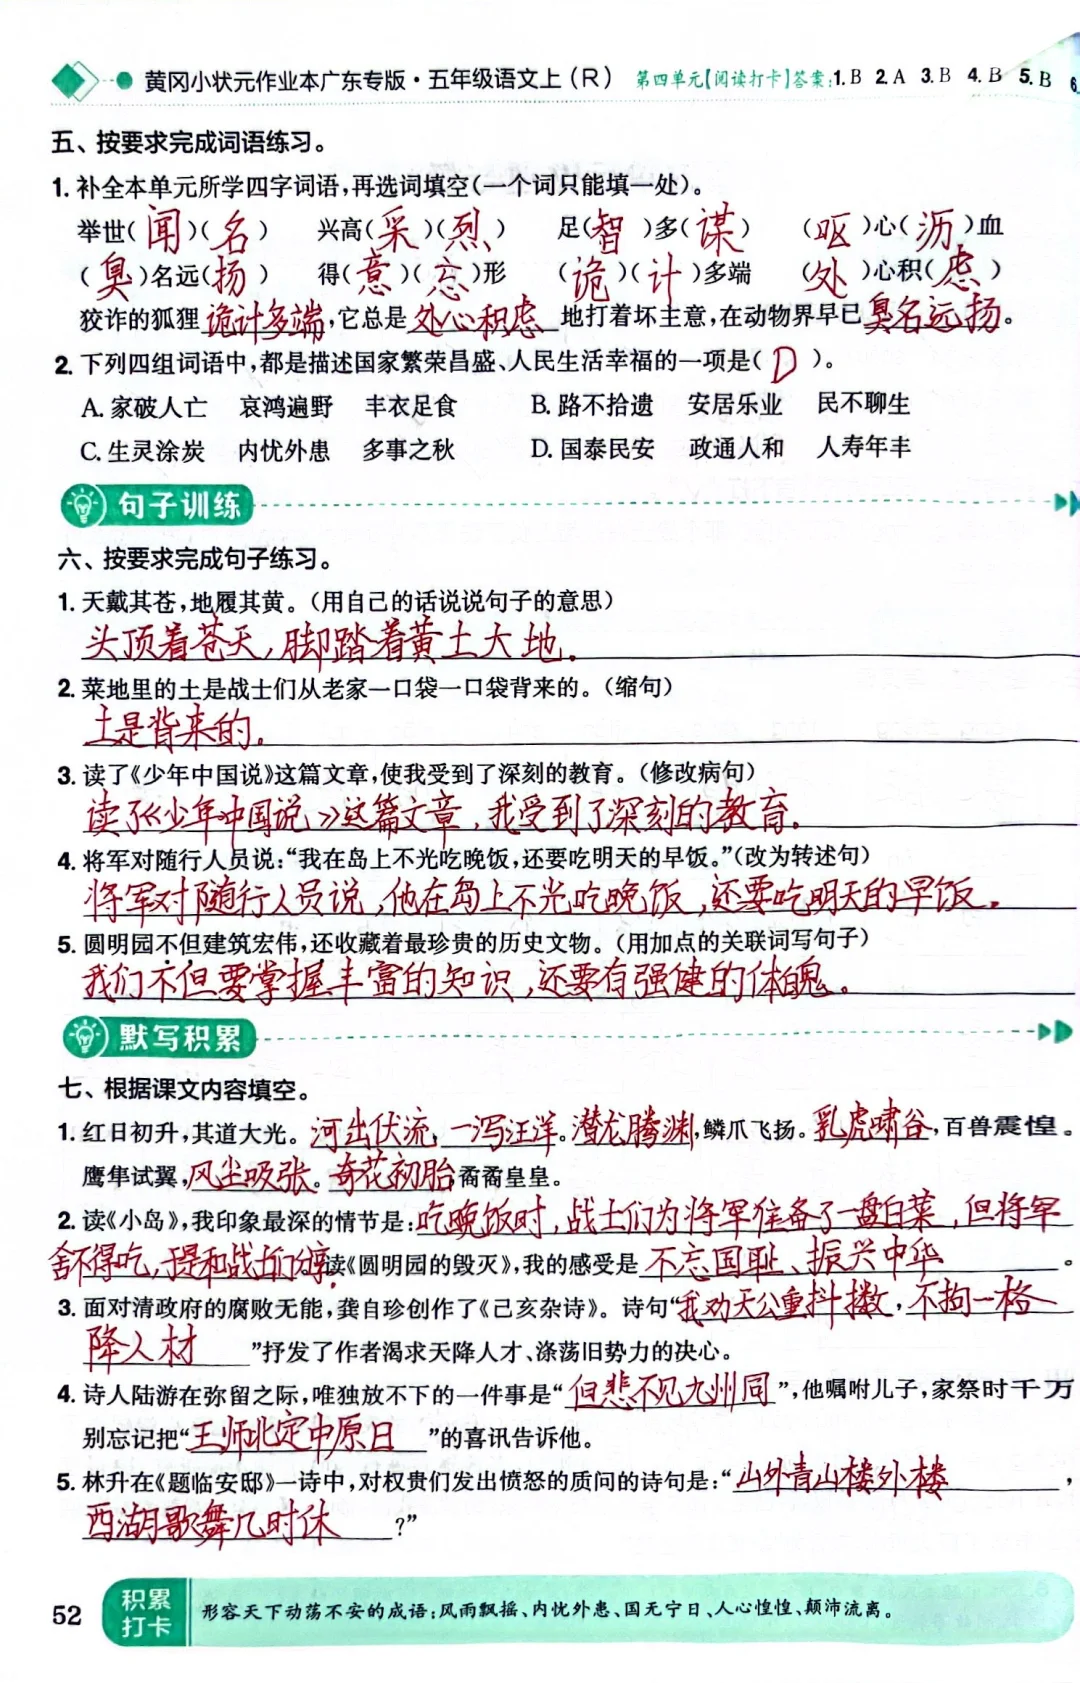 黄冈小状元作业本广东专版·五年级语文上(R) 第四单元【阅读打卡】答案:1.B 2.A 3.B 4.B 5.B 6.
五、按要求完成词语练习。
1.补全本单元所学四字词语,再选词填空(一个词只能填一处)。
举世(闻)(名) 兴高(采)(烈) 足(智)多(谋) (呕)心(沥)血
(臭)名远(扬) 得(意)(忘)形 (诡)(计)多端 (处)心积(虑)
狡诈的狐狸诡计多端,它总是处心积虑地打着坏主意,在动物界早已臭名远扬。
2.下列四组词语中,都是描述国家繁荣昌盛、人民生活幸福的一项是(D)。
A.家破人亡 哀鸿遍野 丰衣足食 B.路不拾遗 安居乐业 民不聊生
C.生灵涂炭 内忧外患 多事之秋 D.国泰民安 政通人和 人寿年丰
句子训练
六、按要求完成句子练习。
1.天戴其苍,地履其黄。(用自己的话说说句子的意思)
头顶着苍天,脚踏着黄土大地。
2.菜地里的土是战士们从老家一口袋一口袋背来的。(缩句)
土是背来的。
3.读了《少年中国说》这篇文章,使我受到了深刻的教育。(修改病句)
读了《少年中国说》这篇文章,我受到了深刻的教育。
4.将军对随行人员说:“我在岛上不光吃晚饭,还要吃明天的早饭。”(改为转述句)
将军对随行人员说,他在岛上不光吃晚饭,还要吃明天的早饭。
5.圆明园不但建筑宏伟,还收藏着最珍贵的历史文物。(用加点的关联词写句子)
我们不但要掌握丰富的知识,还要有强健的体魄。
默写积累
七、根据课文内容填空。
1.红日初升,其道大光。河出伏流,一泻汪洋。潜龙腾渊,鳞爪飞扬。乳虎啸谷,百兽震惶。
鹰隼试翼,风尘吸张。奇花初胎,矞矞皇皇。
2.读《小岛》,我印象最深的情节是:吃晚饭时,战士们为将军准备了一盘白菜,但将军
舍不得吃,于是和战士们分享。读《圆明园的毁灭》,我的感受是不忘国耻、振兴中华。
3.面对清政府的腐败无能,龚自珍创作了《己亥杂诗》。诗句“我劝天公重抖擞,不拘一格
降人材”抒发了作者渴求天降人才、涤荡旧势力的决心。
4.诗人陆游在弥留之际,唯独放不下的一件事是“但悲不见九州同”,他嘱咐儿子,家祭时千万
别忘记把“王师北定中原日”的喜讯告诉他。
5.林升在《题临安邸》一诗中,对权贵们发出愤怒的质问的诗句是:“山外青山楼外楼,
西湖歌舞几时休?”
52 积累打卡 形容天下动荡不安的成语:风雨飘摇、内忧外患、国无宁日、人心惶惶、颠沛流离。